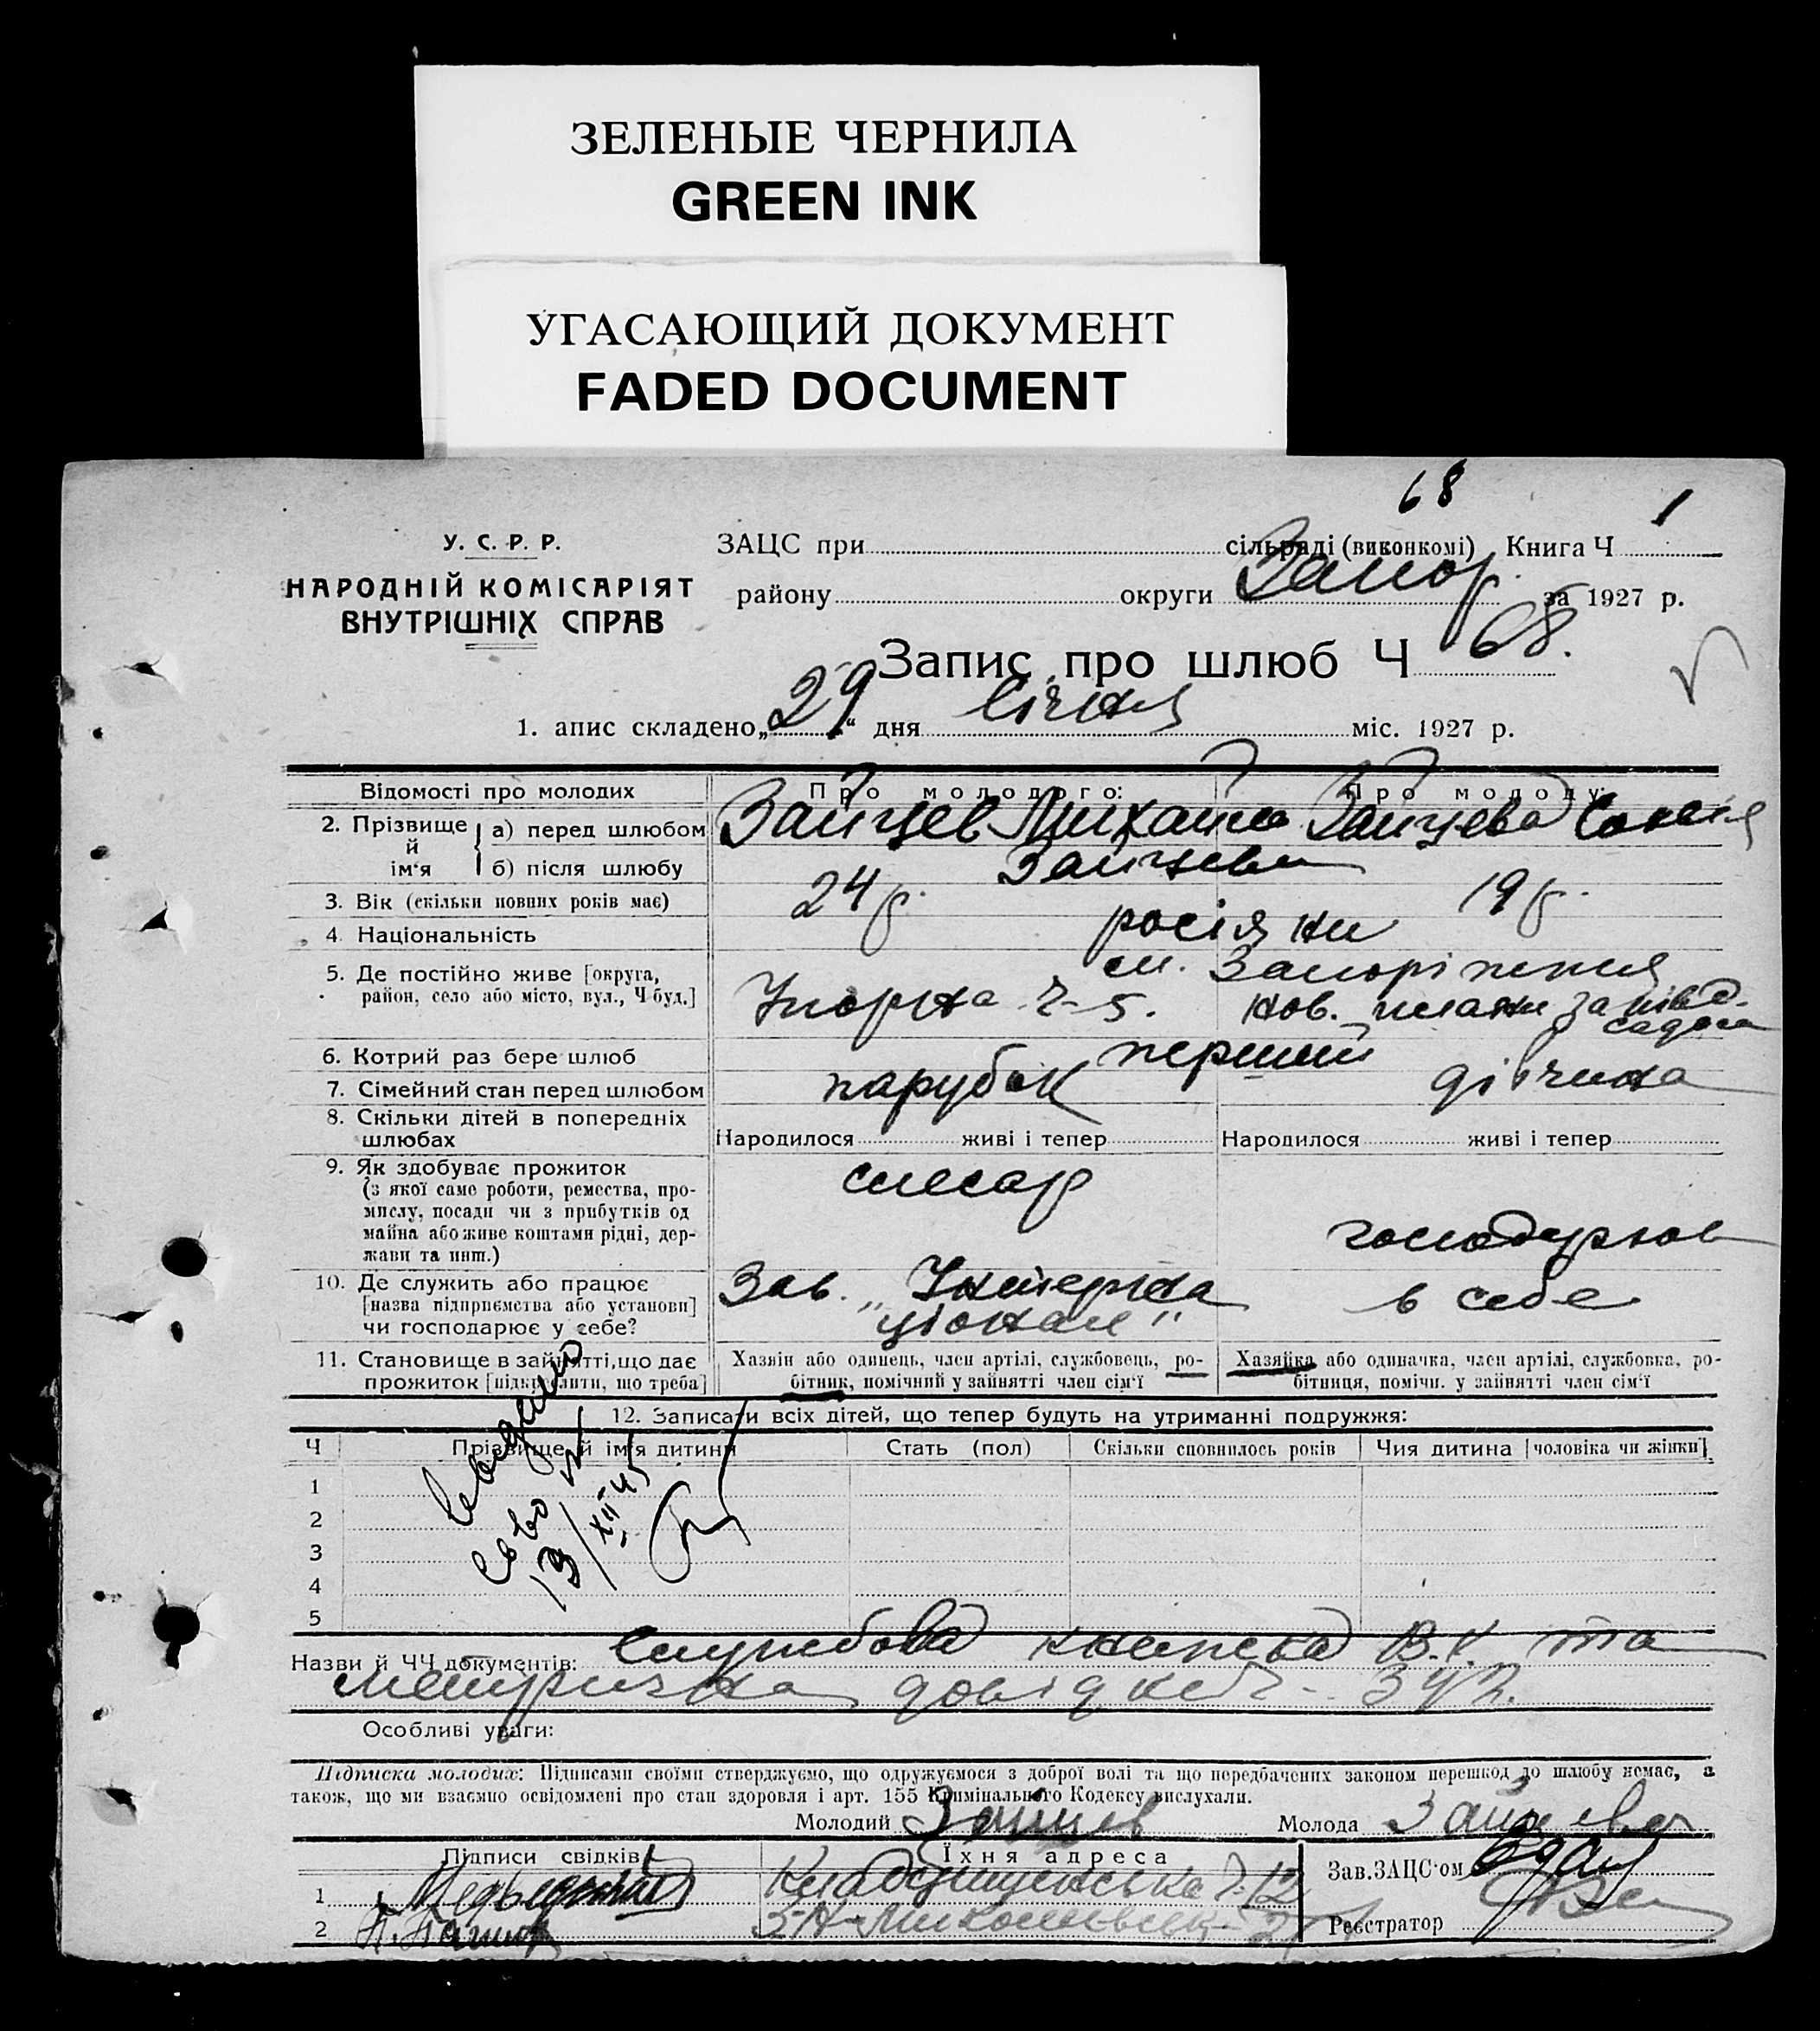 ЗЕЛЕНЫЕ ЧЕРНИЛА
GREEN INK
УГАСАЮЩИЙ ДОКУМЕНТ
FADED DOCUMENT
68
1
У. С. Р. Р.
НАРОДНІЙ КОМІСАРІЯТ
ВНУТРІШНІХ СПРАВ
ЗАЦС при сільраді (виконкомі) Книга Ч
району округи Запор. за 1927 р.
Запис про шлюб Ч 68.
1. апис складено „29“ дня січня міс. 1927 р.
Відомості про молодих Про молодого: Про молоду:
2. Прізвище й ім'я а) перед шлюбом Зайцев Михайло Зайцева
б) після шлюбу Зайцеви
3. Вік (скільки повних років має) 24 р. 19 р.
4. Національність росіяни
5. Де постійно живе [округа, м. Запоріжжя
район, село або місто, вул., Ч буд.] Ч-5. нов. плани
6. Котрий раз бере шлюб перший
7. Сімейний стан перед шлюбом парубок дівчина
8. Скільки дітей в попередніх
шлюбах Народилося живі і тепер Народилося живі і тепер
9. Як здобуває прожиток слесар
(з якої саме роботи, ремества, про-
мислу, посади чи з прибутків од
майна або живе коштами рідні, дер-
жави та инш.)
10. Де служить або працює Зав. „Інтерна в себе
[назва підприємства або установи] ціонал“
чи господарює у себе?
11. Становище в занятті, що дає Хазяїн або одинець, член артілі, службовець, ро- Хазяйка або одиначка, член артілі, службовка, ро-
прожиток [підкреслити, що треба] бітник, помічний у занятті член сім'ї бітниця, помічн. у занятті член сім'ї
12. Записати всіх дітей, що тепер будуть на утриманні подружжя:
Ч Прізвище й ім'я дитини Стать (пол) Скільки сповнилось років Чия дитина [чоловіка чи жінки]
1
2
3
4
5
13/XII 45
Назви й ЧЧ документів: Службова книжка В.К. та
метрична довідка Ч-
Особливі уваги:
Підписка молодих: Підписами своїми стверджуємо, що одружуємося з доброї волі та що передбачених законом перешкод до шлюбу немає, а
також, що ми взаємно освідомлені про стан здоровля і арт. 155 Кримінального Кодексу вислухали.
Молодий Зайцев Молода Зайцева
Підписи свідків Їхня адреса Зав. ЗАЦС'ом
1 Ч-12
2 Реєстратор